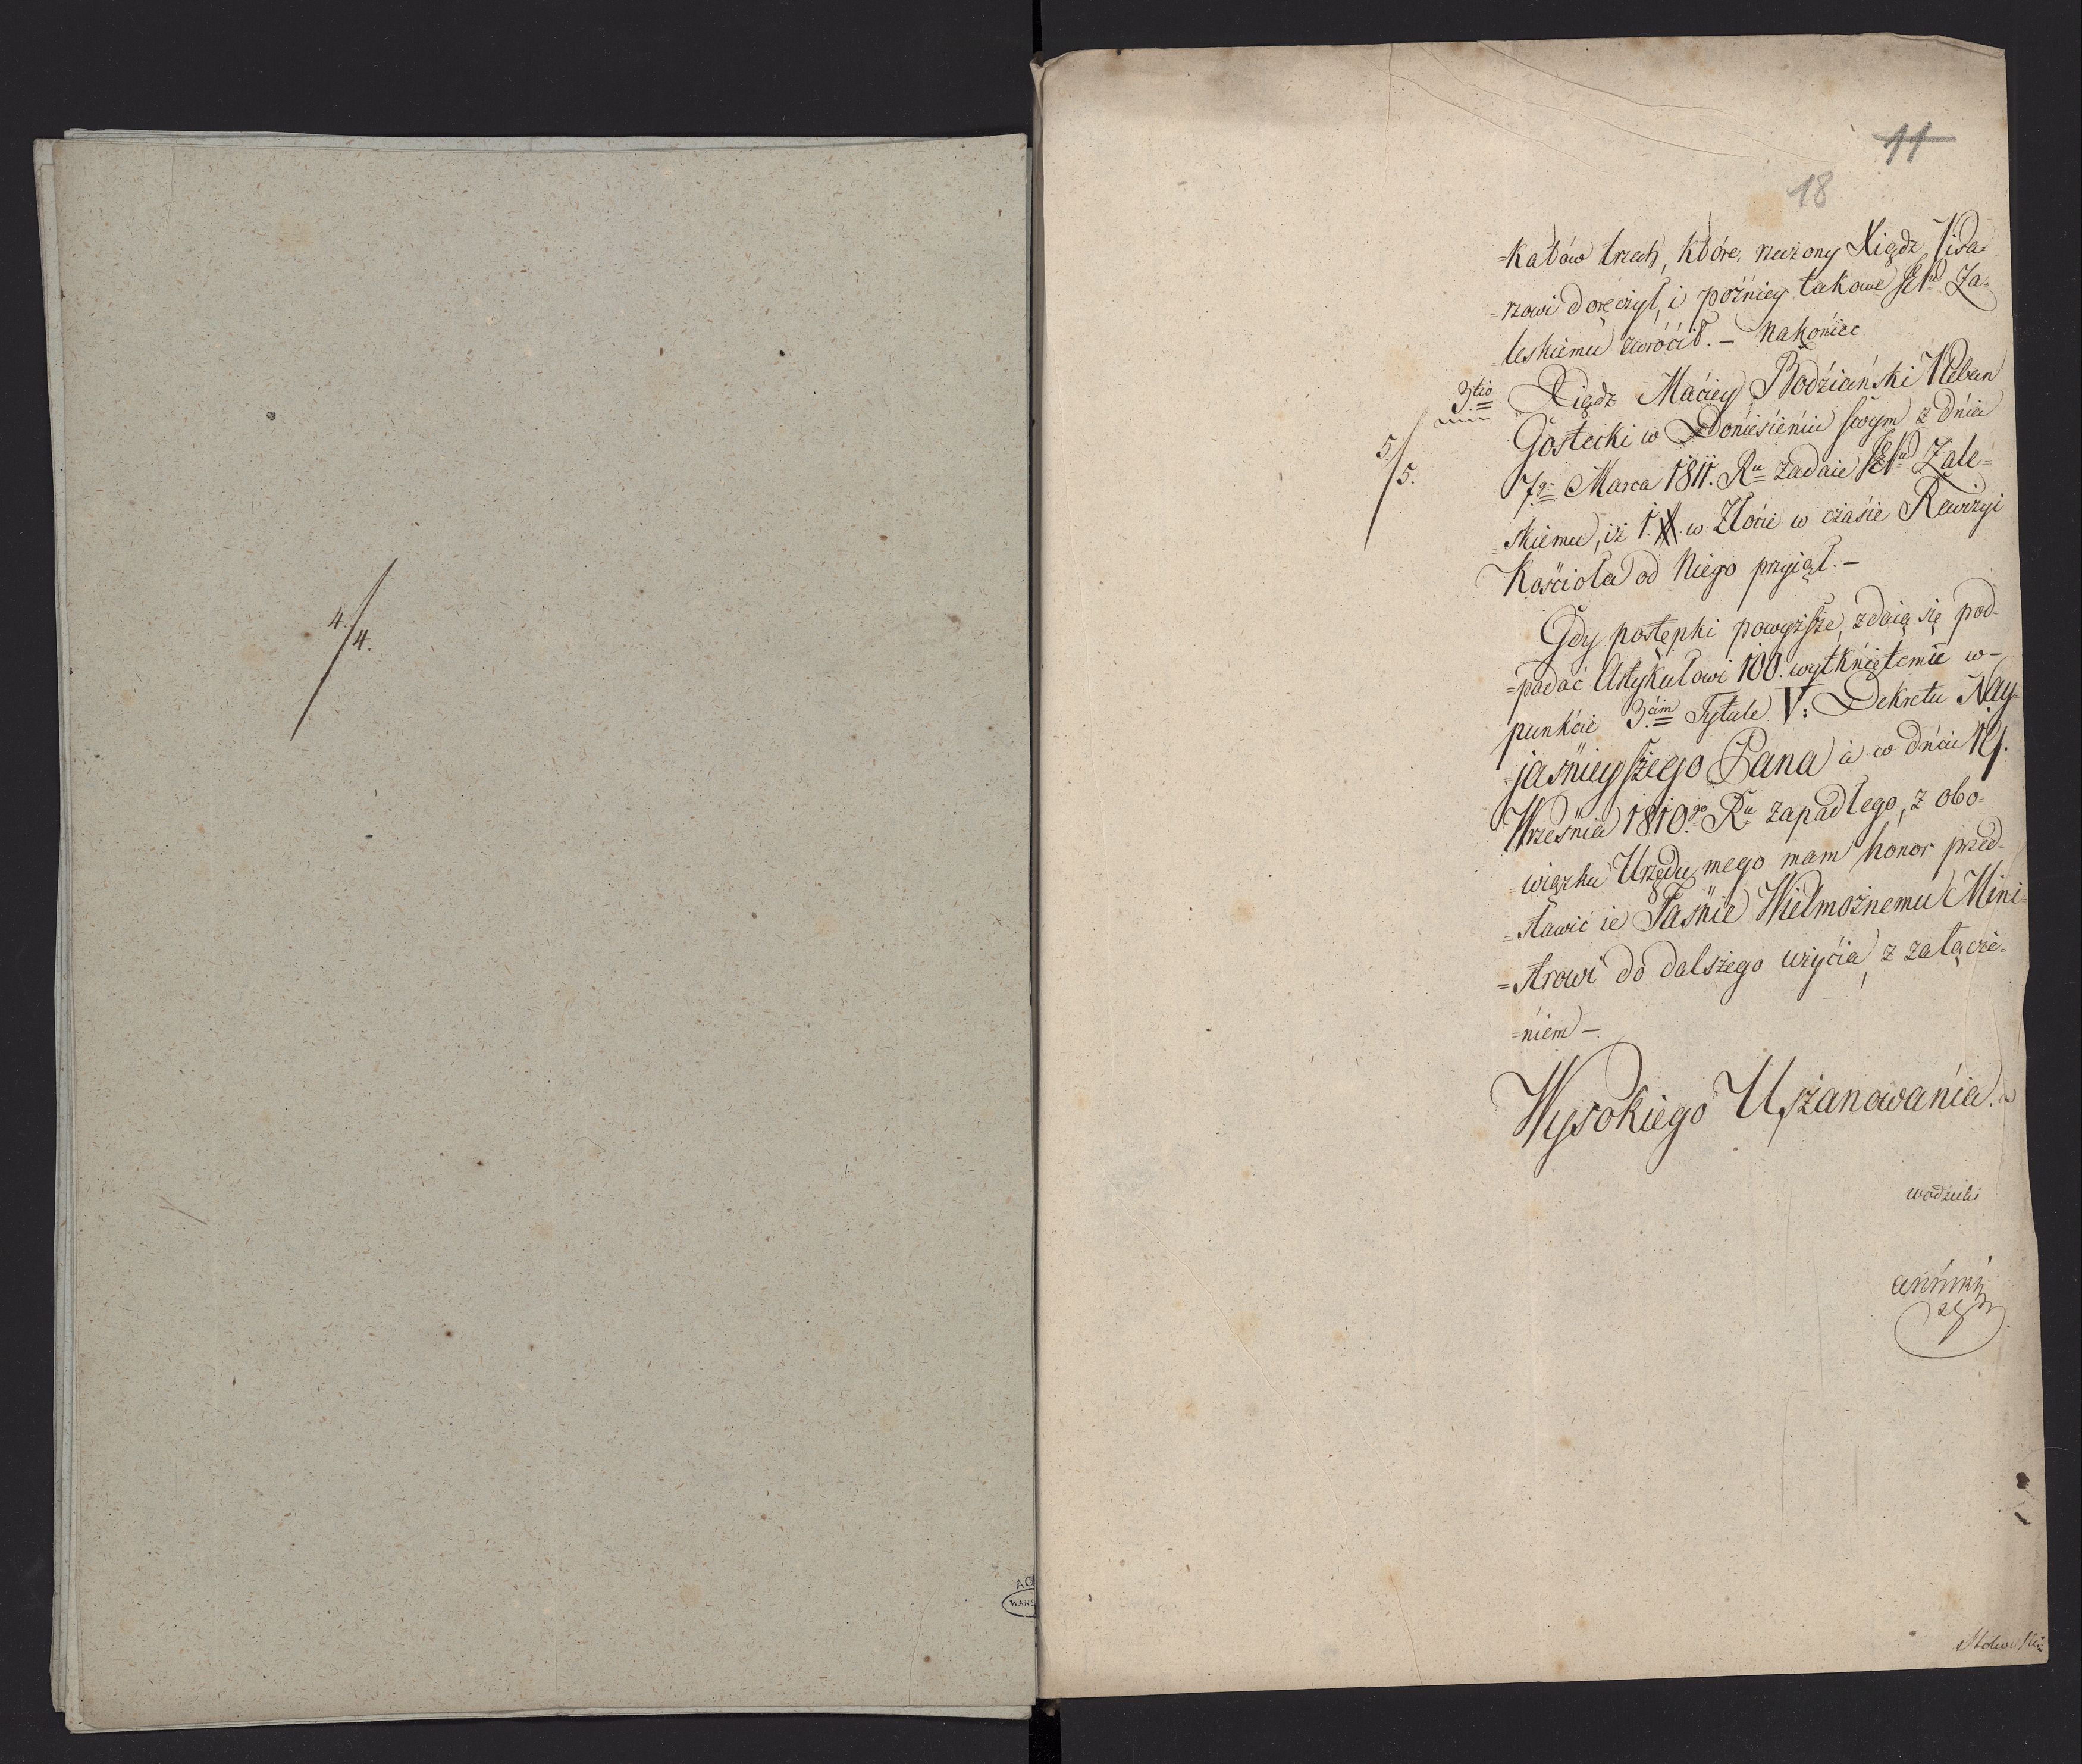 4./4.
11
18
=katów trzech, które rzeczony Xiądz Pisa=
=rzowi doręczył, i poźniey takowe Zа=
leskiemu zwrócił. – Nakoniec
3tio Xiądz Maciey Bodziański Pleban
Gostecki w Doniesieniu swym z dnia
5./5.
7go Marca 1811. Ru zadaie Zale=
=skiemu, iż 1. # w Złocie w czasie Rewizyi
Kościoła od Niego przyiął. –
Gdy postępki powyższe, zdaią się pod=
=padać Artykułowi 100. wytkniętemu w–
punkcie 3cim Tytule V: Dekretu Nay=
jaśnieyszego Pana w dniu 19.
Września 1810.go Ru zapadłego, z obo=
=wiązku Urzędu mego mam honor przed=
=stawić ie Jaśnie Wielmożnemu Mini=
=strowi do dalszego użycia, z załącze=
=niem –
Wysokiego Uszanowania.
wodzicki
ACK
WARS